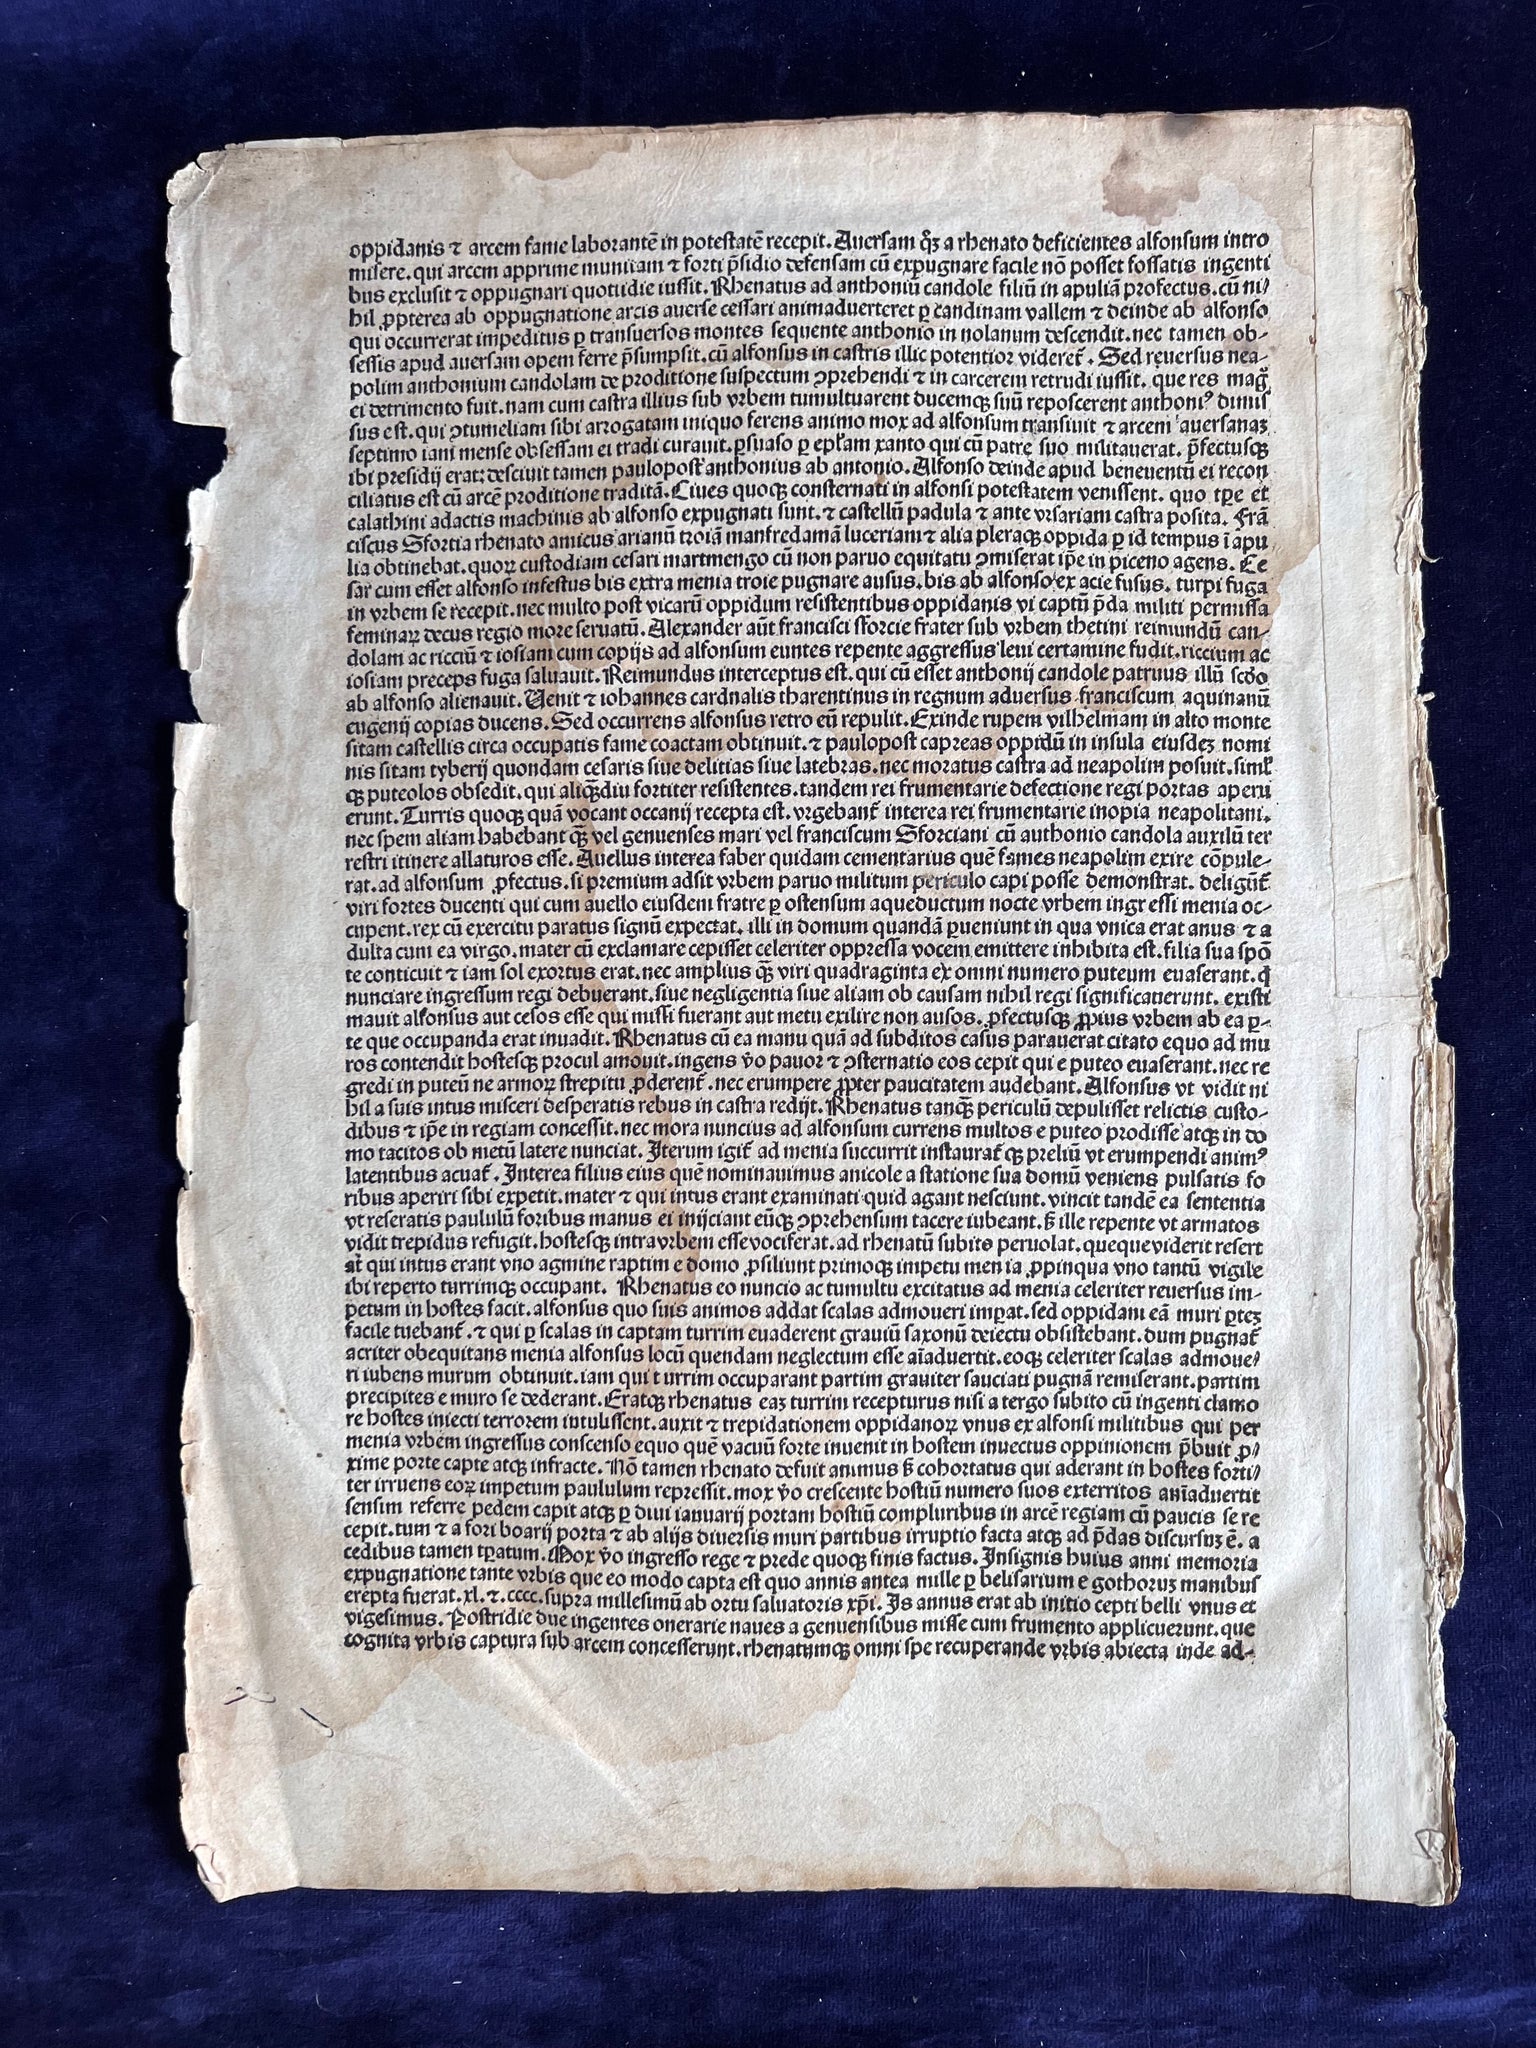 oppidanis ⁊ arcem fame laborantē in potestatē recepit. Auersam qꝫ a rhenato deficientes alfonsum intro
misere. qui arcem apprime munitam ⁊ forti p̄sidio defensam cū expugnare facile nō posset fossatis ingenti
bus exclusit ⁊ oppugnari quotidie iussit. Rhenatus ad anthoniū candole filiū in apuliā profectus. cū ni/
hil ꝓpterea ab oppugnatione arcis auerse cessari animaduerteret ꝑ candinam vallem ⁊ deinde ab alfonso
qui occurrerat impeditus ꝑ transuersos montes sequente anthonio in nolanum descendit. nec tamen ob-
sessis apud auersam opem ferre p̄sumpsit. cū alfonsus in castris illic potentior videret᷑. Sed reuersus nea-
polim anthonium candolam de proditione suspectum ꝯprehendi ⁊ in carcerem retrudi iussit. que res mag
ei detrimento fuit. nam cum castra illius sub vrbem tumultuarent ducemqꝫ suū reposcerent anthoniꝰ dimis
sus est. qui ꝯtumeliam sibi arrogatam iniquo ferens animo mox ad alfonsum transiuit ⁊ arcem auersanaꝫ
septimo iam mense obsessam ei tradi curauit. ꝑsuaso ꝑ ep̄lam xanto qui cū patre suo militauerat. p̄fectusqꝫ
ibi presidij erat: desciuit tamen paulopost anthonius ab antonio. Alfonso deinde apud beneuentū ei recon
ciliatus est cū arcē proditione traditā. Ciues quoqꝫ consternati in alfonsi potestatem venissent. quo tp̄e et
calathini adactis machinis ab alfonso expugnati sunt. ⁊ castellū padula ⁊ ante vrsariam castra posita. Frā
ciscus Sfortia rhenato amicus arianū troiam manfredamā luceriam ⁊ alia pleraqꝫ oppida ꝑ id tempus ī apu
lia obtinebat. quoꝝ custodiam cesari martmengo cū non paruo equitatu ꝯmiserat ip̄e in piceno agens. Ce
sar cum esset alfonso infestus bis extra menia troie pugnare ausus. bis ab alfonso ex acie fusus. turpi fuga
in vrbem se recepit. nec multo post vicarū oppidum resistentibus oppidanis vi captū p̄da militi permissa
feminaꝝ decus regio more seruatū. Alexander aūt francisci sforcie frater sub vrbem thetini reimundū can-
dolam ac ricciū ⁊ iosiam cum copijs ad alfonsum euntes repente aggressus leui certamine fudit. riccium ac
iosiam preceps fuga saluauit. Reimundus interceptus est. qui cū esset anthonij candole patruus illū scdo
ab alfonso alienauit. Uenit ⁊ iohannes cardnalis tharentinus in regnum aduersus franciscum aquinanū
eugenij copias ducens. Sed occurrens alfonsus retro eū repulit. Exinde rupem vilhelmam in alto monte
sitam castellis circa occupatis fame coactam obtinuit. ⁊ paulopost capreas oppidū in insula eiusdeꝫ nomi
nis sitam tyberij quondam cesaris siue delitias siue latebras. nec moratus castra ad neapolim posuit. simĺ
qꝫ puteolos obsedit. qui aliqͣdiu fortiter resistentes. tandem rei frumentarie defectione regi portas aperu
erunt. Turris quoqꝫ quā vocant occanij recepta est. vrgebant᷑ interea rei frumentarie inopia neapolitani.
nec spem aliam habebant qͣꝫ vel genuenses mari vel franciscum Sforciani cū authonio candola auxiliū ter
restri itinere allaturos esse. Auellus interea faber quidam cementarius quē fames neapolim exire cōpule-
rat. ad alfonsum ꝓfectus. si premium adsit vrbem paruo militum periculo capi posse demonstrat. deligūt᷑
viri fortes ducenti qui cum auello eiusdem fratre ꝑ ostensum aqueductum nocte vrbem ingressi menia oc-
cupent. rex cū exercitu paratus signū expectat. illi in domum quandā ꝑueniunt in qua vnica erat anus ⁊ a
dulta cum ea virgo. mater cū exclamare cepisset celeriter oppressa vocem emittere inhibita est. filia sua spō
te conticuit ⁊ iam sol exortus erat. nec amplius qͣꝫ viri quadraginta ex omni numero puteum euaserant. q
nunciare ingressum regi debuerant. siue negligentia siue aliam ob causam nihil regi significauerunt. existi
mauit alfonsus aut cesos esse qui missi fuerant aut metu exilire non ausos. ꝓfectusqꝫ ꝓpius vrbem ab ea ꝑ-
te que occupanda erat inuadit. Rhenatus cū ea manu quā ad subditos casus parauerat citato equo ad mu
ros contendit hostesqꝫ procul amouit. ingens v̄o pauor ⁊ ꝯsternatio eos cepit qui e puteo euaserant. nec re
gredi in puteū ne armoꝝ strepitu ꝓderent᷑. nec erumpere ꝓpter paucitatem audebant. Alfonsus vt vidit ni
hil a suis intus misceri desperatis rebus in castra redijt. Rhenatus tanqͣꝫ periculū depulisset relictis custo-
dibus ⁊ ip̄e in regiam concessit. nec mora nuncius ad alfonsum currens multos e puteo prodisse atqꝫ in do
mo tacitos ob metū latere nunciat. Iterum igit᷑ ad menia succurrit instaurat᷑ qꝫ preliū vt erumpendi animꝰ
latentibus acuat᷑. Interea filius eius quē nominauimus anicole a statione sua domū veniens pulsatis fo
ribus aperiri sibi expetit. mater ⁊ qui intus erant examinati quid agant nesciunt. vincit tandē ea sententia
vt reseratis paululū foribus manus ei inijciant eūqꝫ ꝯprehensum tacere iubeant. ß ille repente vt armatos
vidit trepidus refugit. hostesqꝫ intra vrbem esse vociferat. ad rhenatū subito peruolat. queque viderit refert
at qui intus erant vno agmine raptim e domo ꝓsiliunt primoqꝫ impetu menia ꝓpinqua vno tantū vigile
ibi reperto turrimqꝫ occupant. Rhenatus eo nuncio ac tumultu excitatus ad menia celeriter reuersus im-
petum in hostes facit. alfonsus quo suis animos addat scalas admoueri imꝑat. sed oppidani eā muri ꝑteꝫ
facile tuebant᷑. ⁊ qui ꝑ scalas in captam turrim euaderent grauiū saxonū deiectu obsistebant. dum pugnat᷑
acriter obequitans menia alfonsus locū quendam neglectum esse aīaduertit. eoqꝫ celeriter scalas admoue/
ri iubens murum obtinuit. iam qui turrim occuparant partim grauiter sauciati pugnā remiserant. partim
precipites e muro se dederant. Eratqꝫ rhenatus eaꝫ turrim recepturus nisi a tergo subito cū ingenti clamo
re hostes iniecti terrorem intulissent. auxit ⁊ trepidationem oppidanoꝝ vnus ex alfonsi militibus qui per
menia vrbem ingressus conscenso equo quē vacuū forte inuenit in hostem inuectus oppinionem p̄buit ꝓ/
xime porte capte atqꝫ infracte. Nō tamen rhenato defuit animus ß cohortatus qui aderant in hostes forti/
ter irruens eoꝝ impetum paululum repressit. mox v̄o crescente hostiū numero suos exterritos anīaduertit
sensim referre pedem capit atqꝫ ꝑ diui ianuarij portam hostiū compluribus in arcē regiam cū paucis se re
cepit. tum ⁊ a fori boarij porta ⁊ ab alijs diuersis muri partibus irruptio facta atqꝫ ad p̄das discursuꝫ ē. a
cedibus tamen tꝑatum. Mox v̄o ingresso rege ⁊ prede quoqꝫ finis factus. Insignis huius anni memoria
expugnatione tante vrbis que eo modo capta est quo annis antea mille ꝑ belisarium e gothoruꝫ manibus
erepta fuerat. xl. ⁊. cccc. supra millesimū ab ortu saluatoris xp̄i. Is annus erat ab initio cepti belli vnus et
vigesimus. Postridie due ingentes onerarie naues a genuensibus misse cum frumento applicuerunt. que
cognita vrbis captura sub arcem concesserunt. rhenatumqꝫ omni spe recuperande vrbis abiecta inde ad-